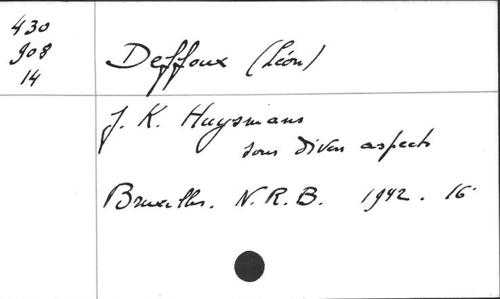 430
908
14
Deffoux (Léon)
J. K. Huysmans
sous divers aspects
Bruxelles. N. R. B. 1942. 16°